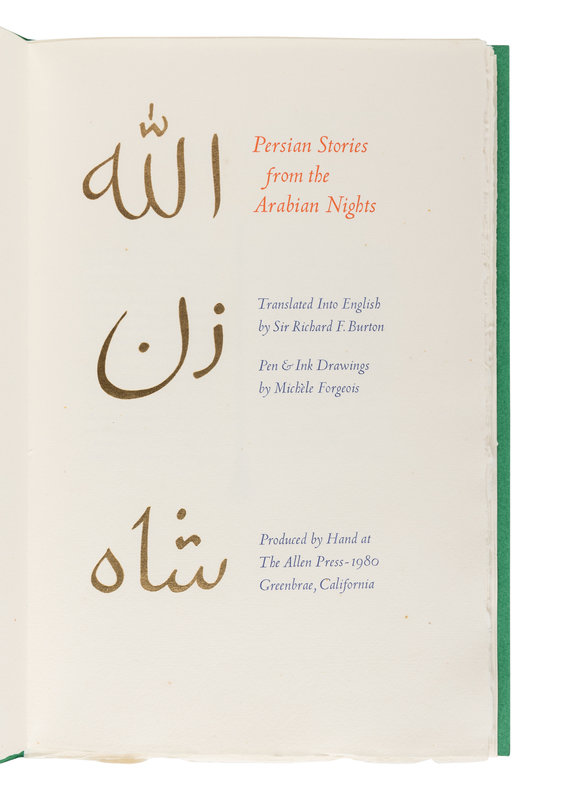 الله
Persian Stories
from the
Arabian Nights
زن
Translated Into English
by Sir Richard F. Burton
Pen & Ink Drawings
by Michèle Forgeois
شاه
Produced by Hand at
The Allen Press-1980
Greenbrae, California